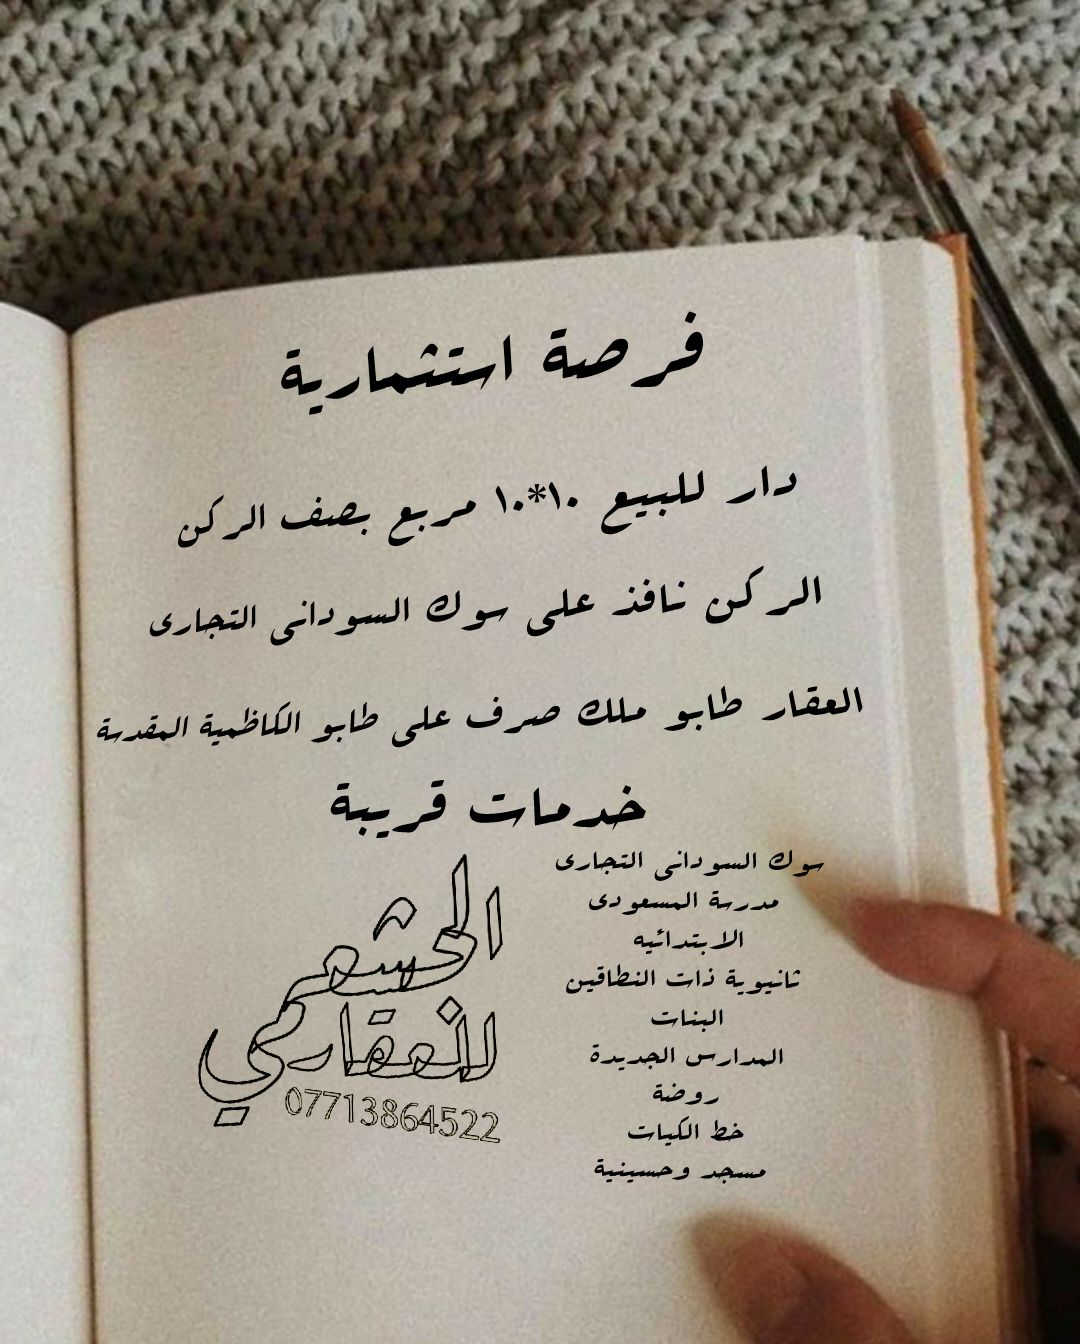 فرصة استثمارية
دار للبيع ١٠*١٠ مربع بصف الركن
الركن نافذ على سوك السوداني التجاري
العقار طابو ملك صرف على طابو الكاظمية المقدسة
خدمات قريبة
سوك السوداني التجاري
مدرسة المسعودي
الابتدائيه
ثانيوية ذات النطاقين
البنات
المدارس الجديدة
روضة
خط الكيات
مسجد وحسينية
العقاري
07713864522